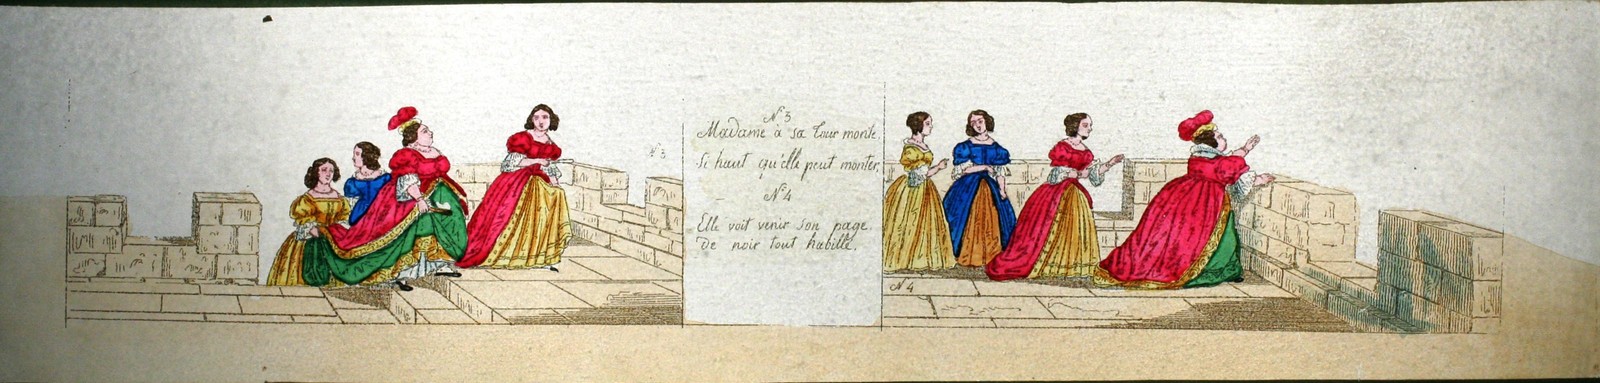 N. 3
N. 3
Madame à sa Tour monte.
Si haut qu'elle peut monter,
N. 4
Elle voit venir son page,
De noir tout habillé.
N. 4